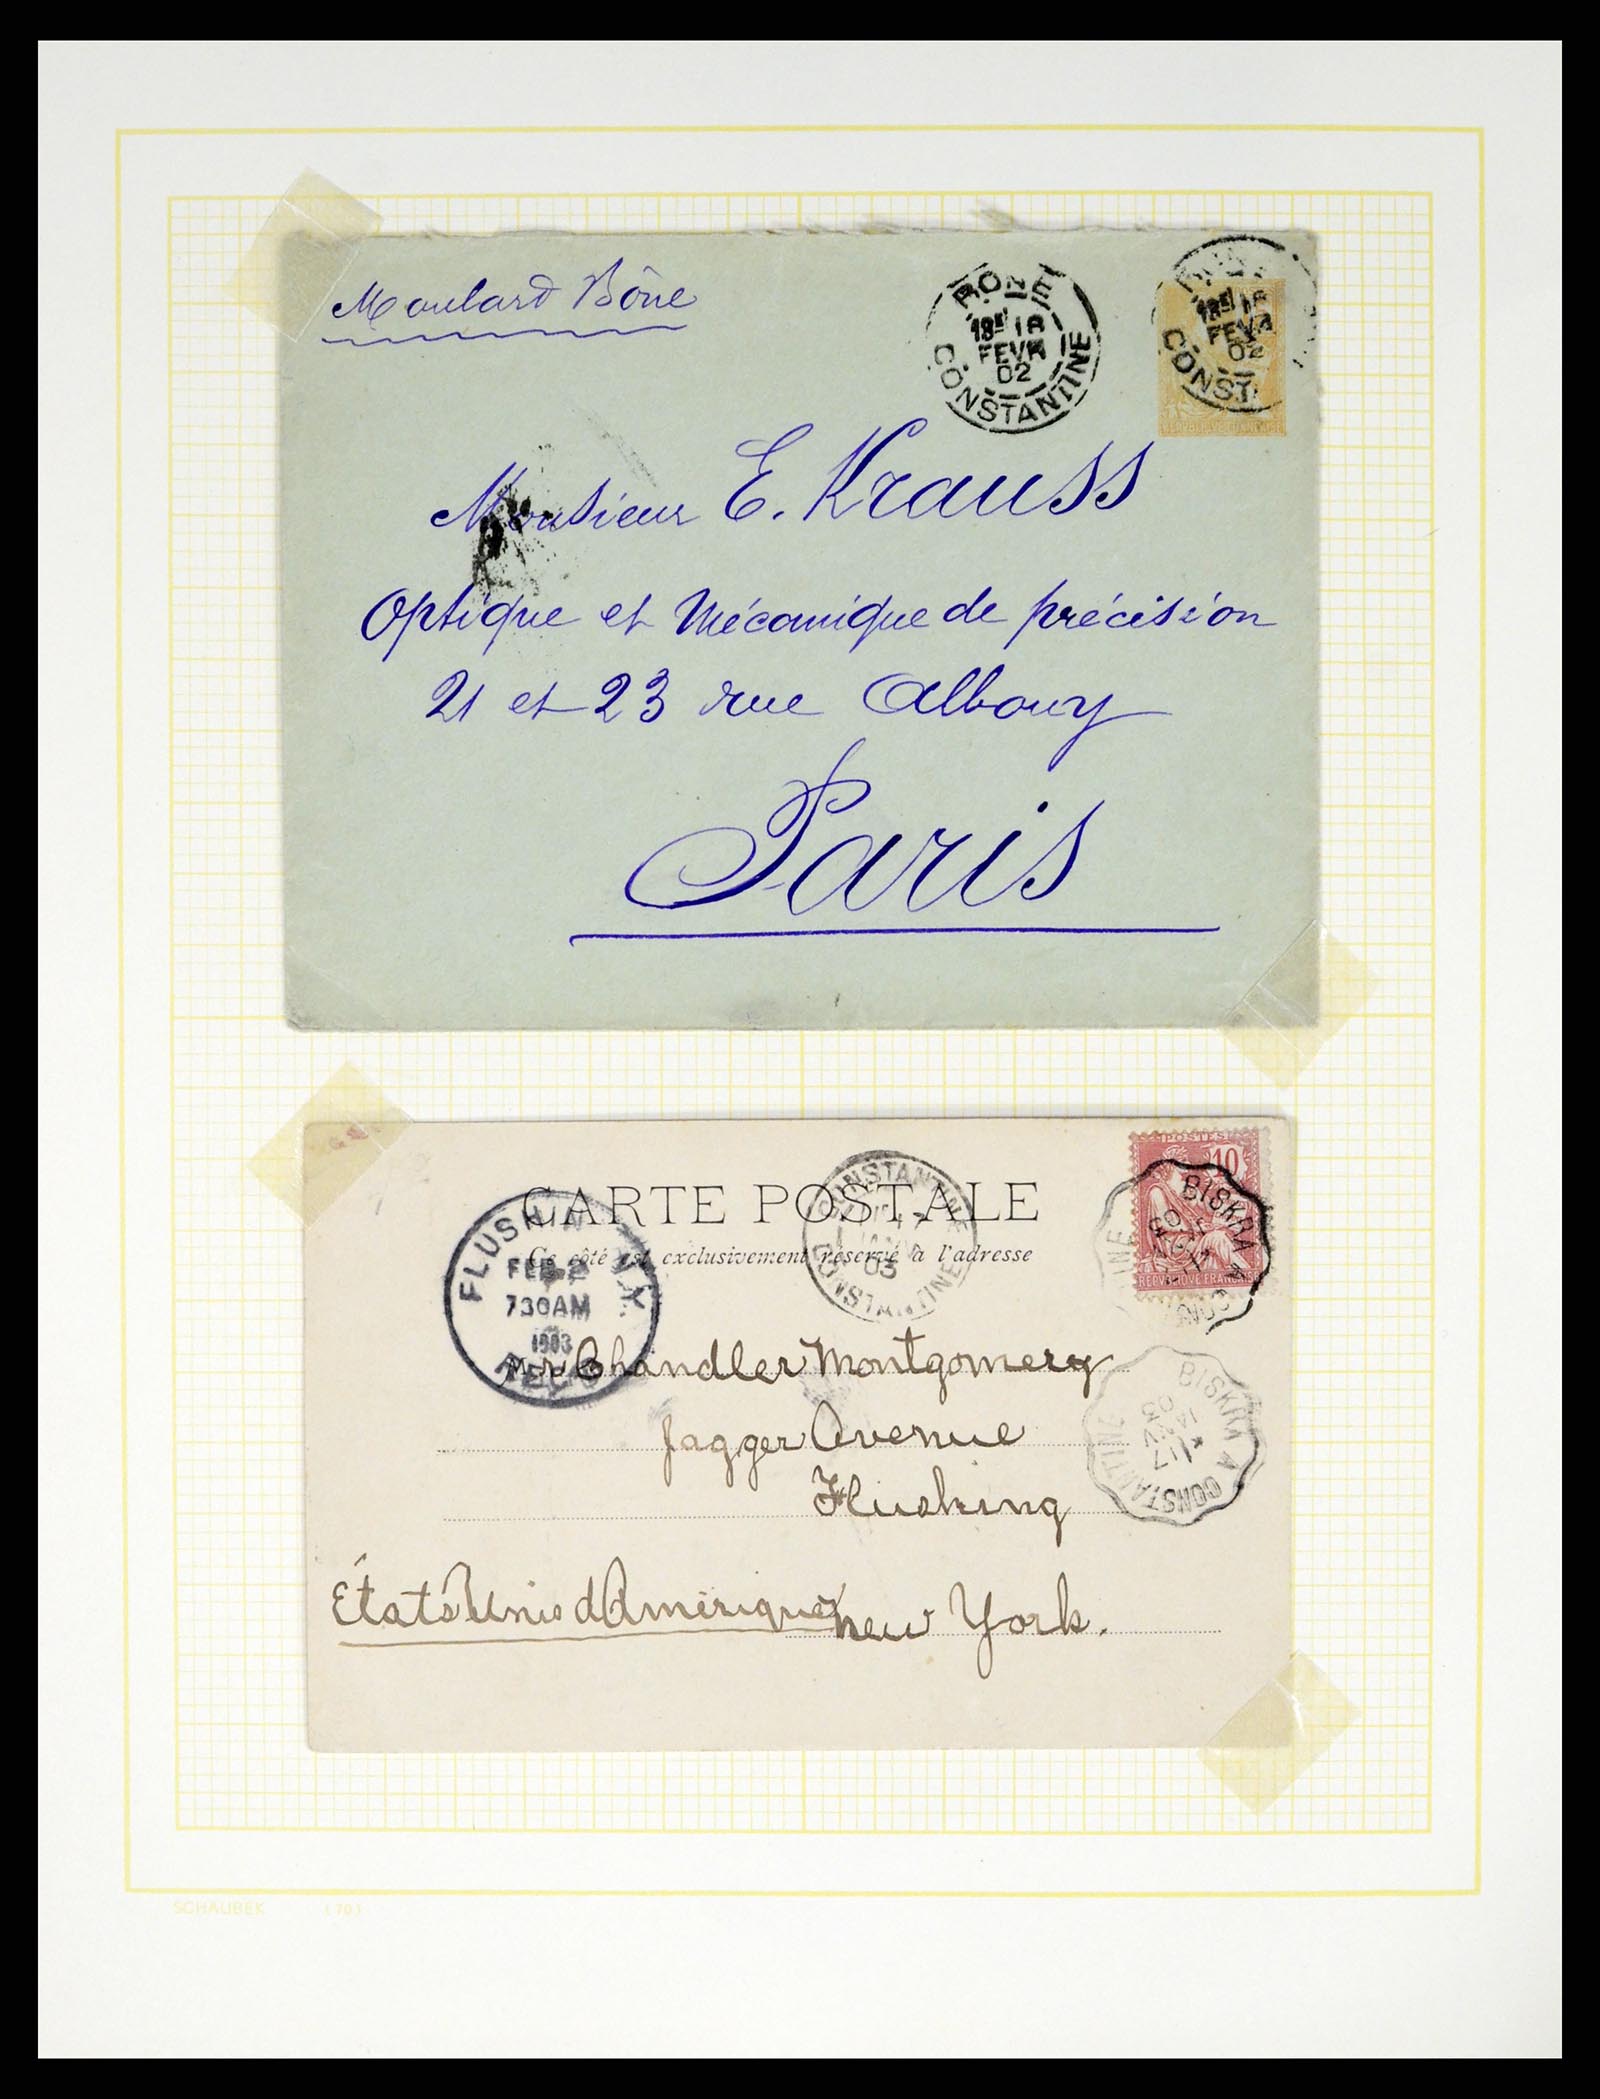 Moulard Bône
BONE
18E 18
FEVR
02
CONSTANTINE
18E 18
FEVR
02
CONST
REPUBLIQUE FRANCAISE
Monsieur E. Krauss
Optique et Mécanique de précision
21 et 23 rue Albouy
Paris
CARTE POSTALE
Ce côté est exclusivement réservé à l'adresse
POSTES
10
REPUBLIQUE FRANCAISE
CONSTANTINE
03
CONSTANTINE
BISKRA A
03
INE
FLUSH N.Y.
FEB 2
730AM
1903
REC'D
Mr Chandler Montgomery
Jagger Avenue
Flushing
États Unis d'Amérique New York.
BISKRA A CONSTANTINE
03
SCHAUBEK (70)